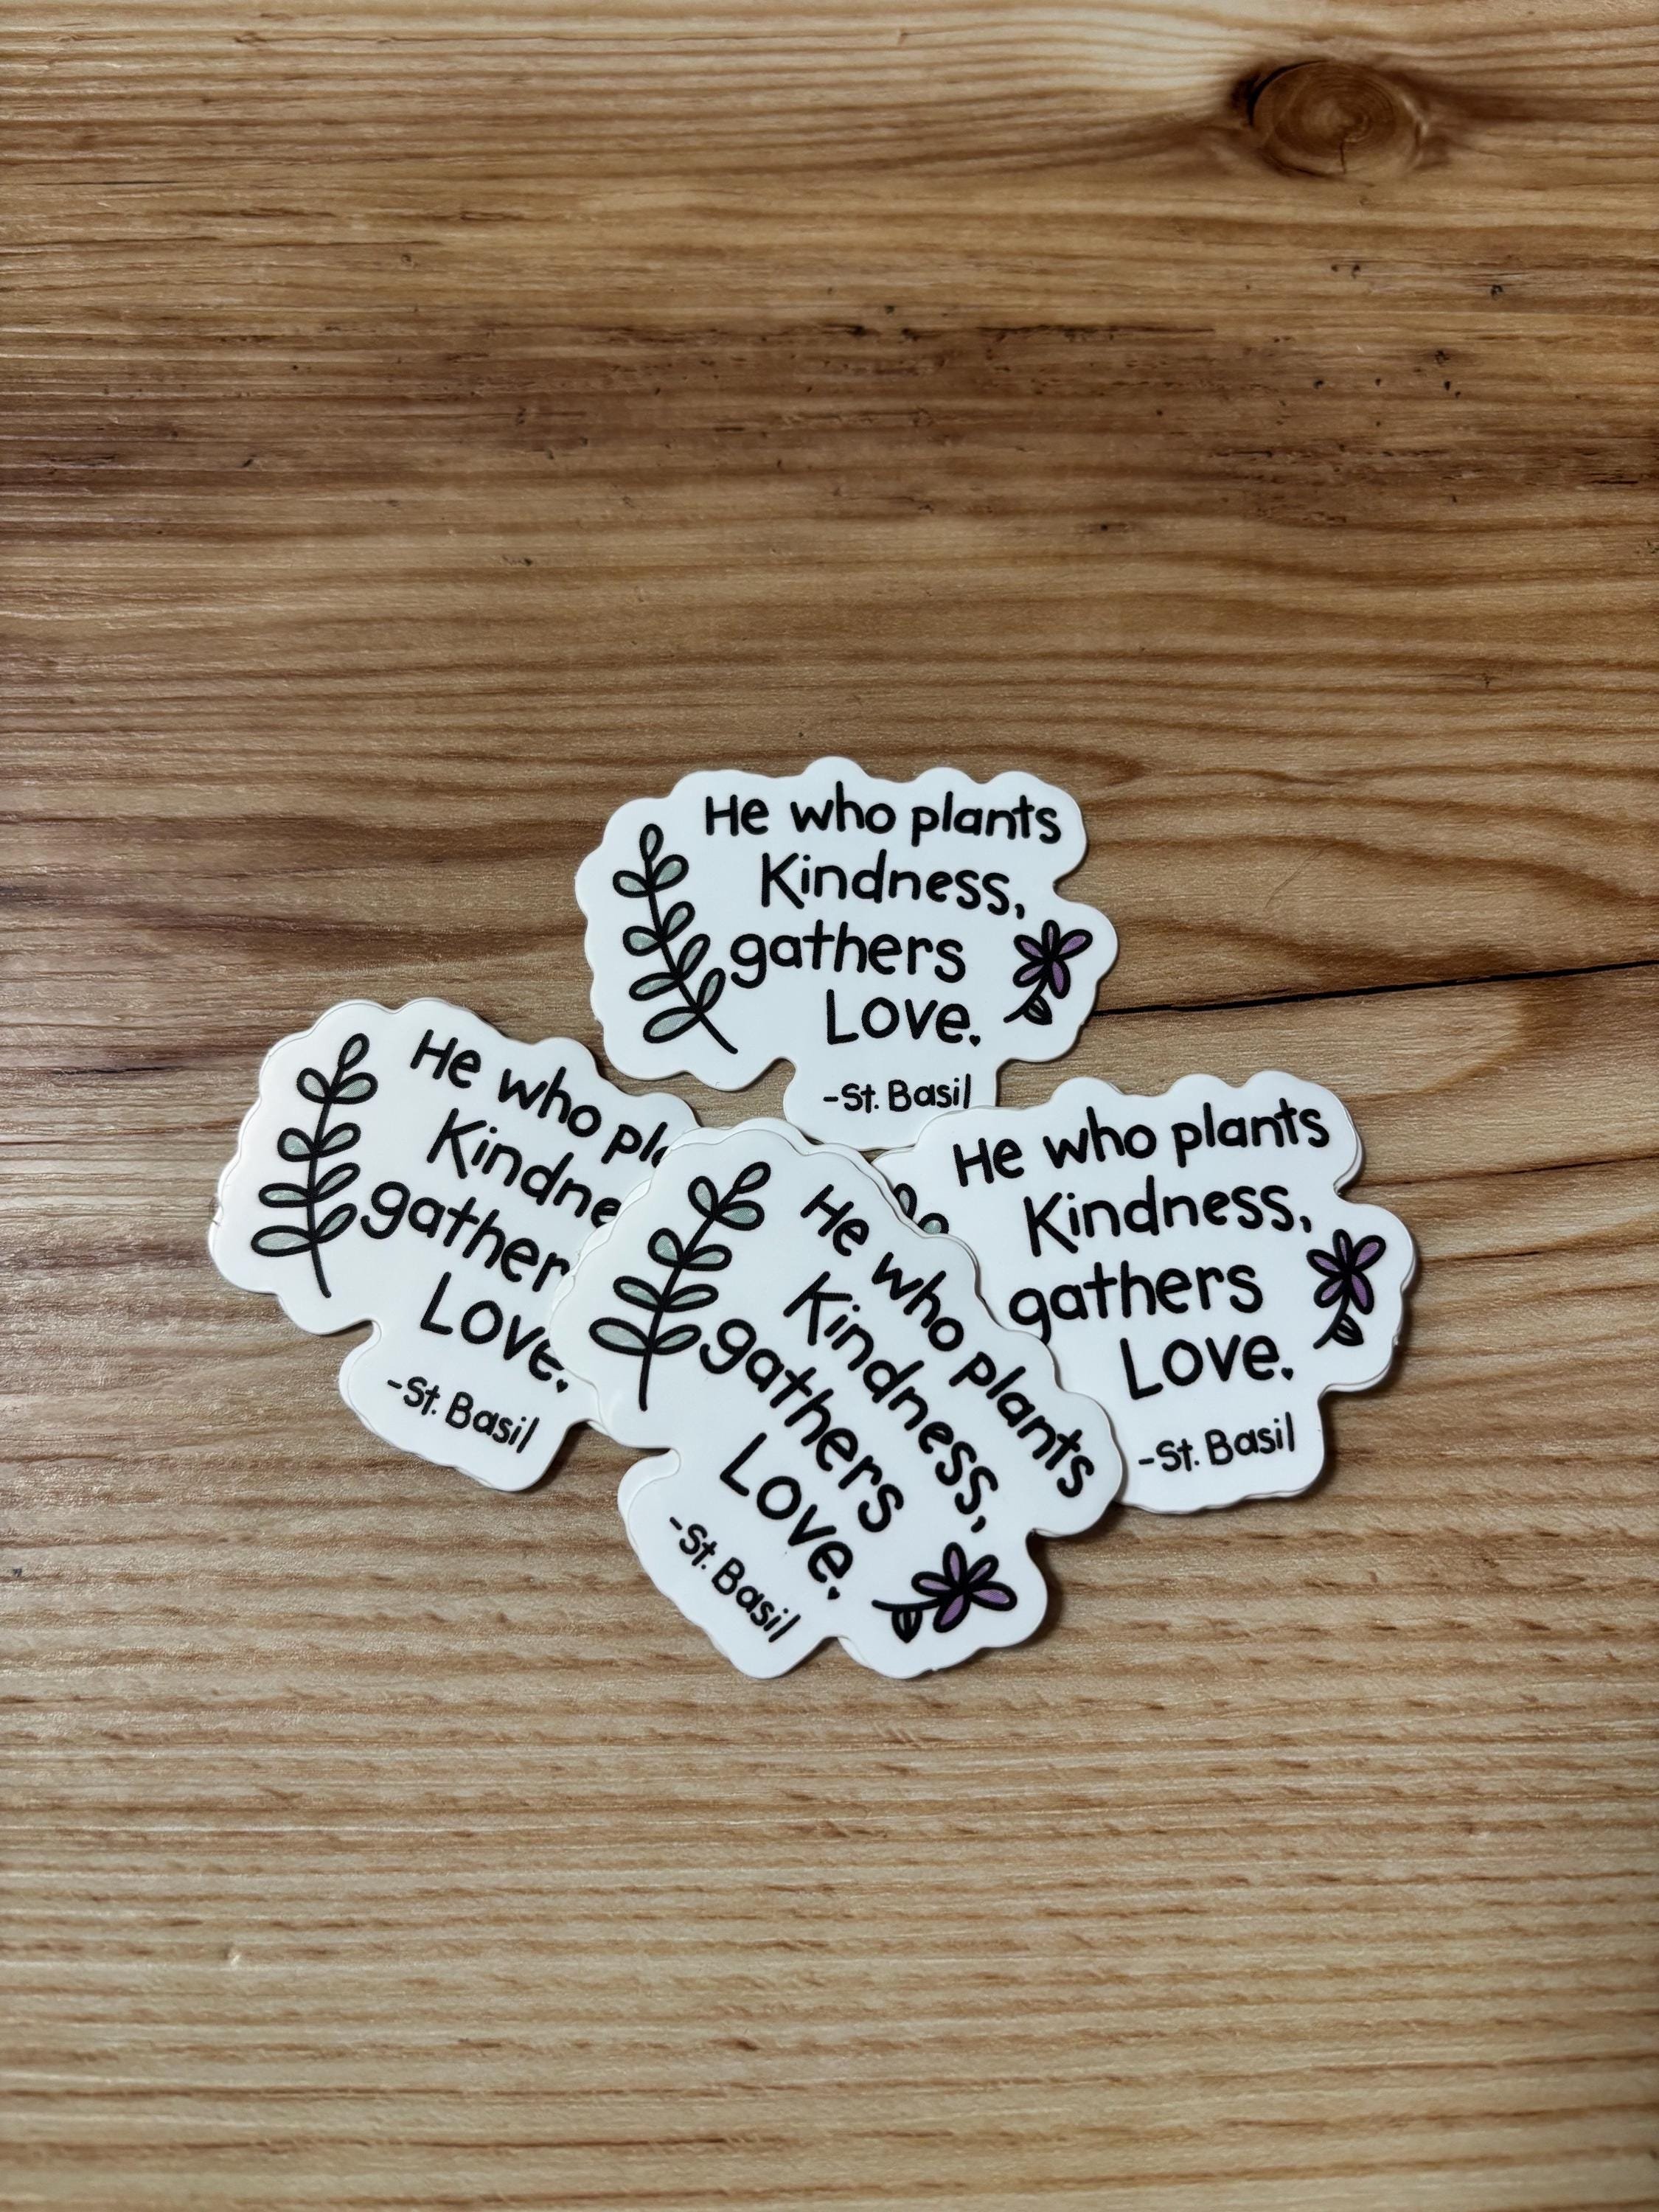 He who plants
Kindness,
gathers
Love.
-St. Basil
He who pla
Kindne
gather
Love.
-St. Basil
He who plants
Kindness,
gathers
Love.
-St. Basil
He who plants
Kindness,
gathers
Love.
-St. Basil